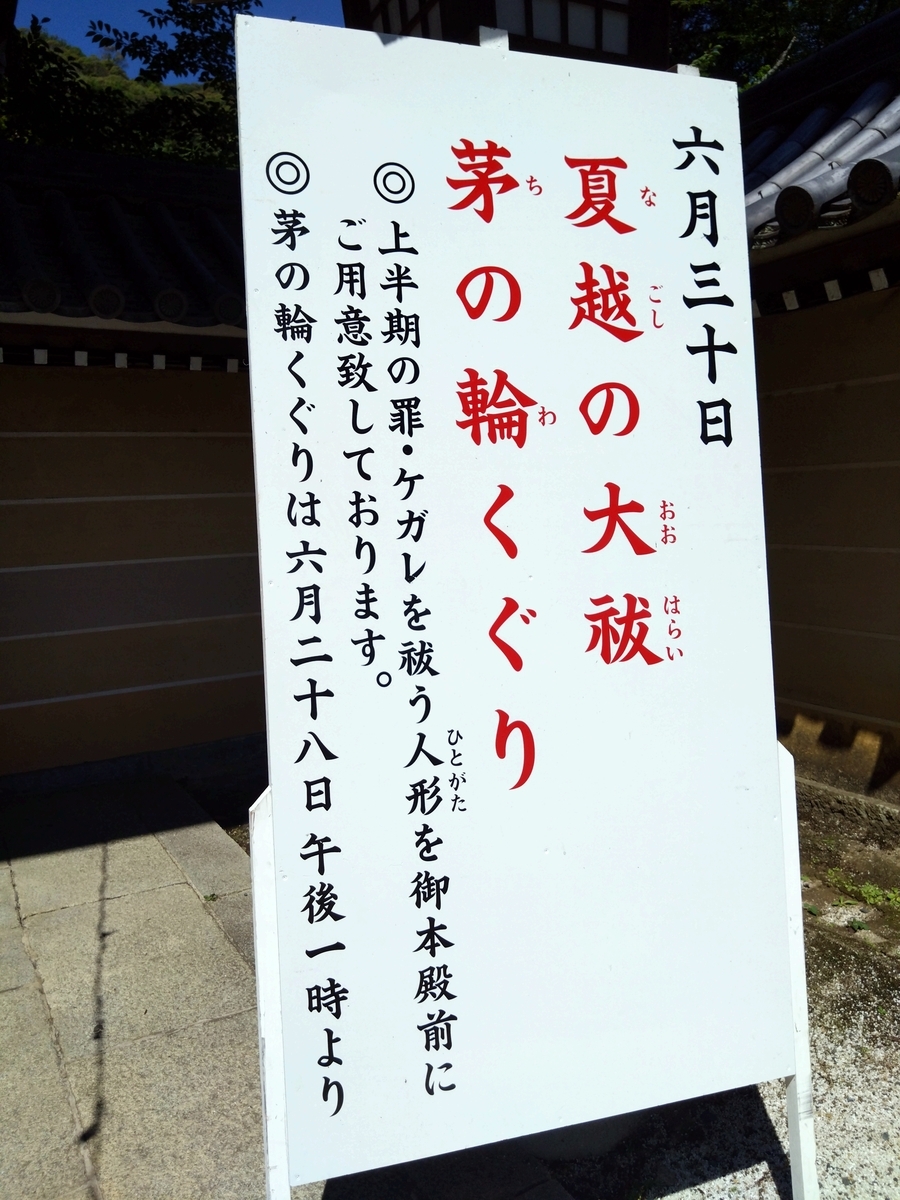 六月三十日
夏越の大祓
なごしおおはらい
茅の輪くぐり
ちわ
◎上半期の罪・ケガレを祓う人形を御本殿前に
ひとがた
ご用意致しております。
◎茅の輪くぐりは六月二十八日午後一時より